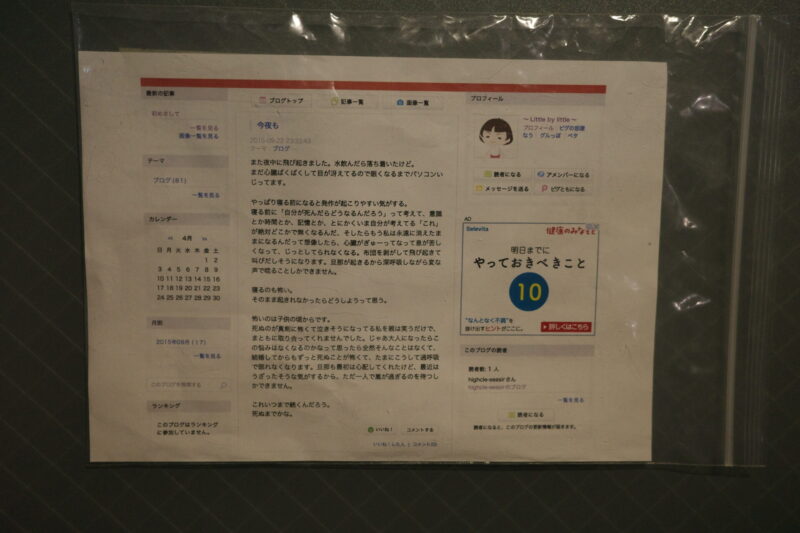 最新の記事
初めまして
一覧を見る
画像一覧を見る
テーマ
ブログ (61)
一覧を見る
カレンダー
<< 4月 >>
日 月 火 水 木 金 土
1 2
3 4 5 6 7 8 9
10 11 12 13 14 15 16
17 18 19 20 21 22 23
24 25 26 27 28 29 30
月別
2015年09月 (17)
一覧を見る
このブログを検索する
ランキング
このブログはランキング
に参加していません。
ブログトップ
記事一覧
画像一覧
今夜も
2015-09-22 23:33:43
テーマ:ブログ
また夜中に飛び起きました。水飲んだら落ち着いたけど。
まだ心臓ばくばくして目が冴えてるので眠くなるまでパソコンい
じってます。
やっぱり寝る前になると発作が起こりやすい気がする。
寝る前に「自分が死んだらどうなるんだろう」って考えて、意識
とか時間とか、記憶とか、とにかくいま自分が考えてる「これ」
が絶対どこかで無くなるんだ、そしたらもう私は永遠に消えたま
まになるんだって想像したら、心臓がぎゅーってなって息が苦し
くなって、じっとしてられなくなる。布団を剥がして飛び起きて
叫びだしそうになります。旦那が起きるから深呼吸しながら変な
声で唸ることしかできません。
寝るのも怖い。
そのまま起きれなかったらどうしようって思う。
怖いのは子供の頃からです。
死ぬのが真剣に怖くて泣きそうになってる私を親は笑うだけで、
まともに取り合ってくれませんでした。じゃあ大人になったらこ
の悩みはなくなるのかなって思ったら全然そんなことはなくて、
結婚してからもずっと死ぬことが怖くて、たまにこうして過呼吸
で眠れなくなります。旦那も最初は心配してくれたけど、最近は
うざったそうな気がするから、ただ一人で嵐が過ぎるのを待つし
かできません。
これいつまで続くんだろう。
死ぬまでかな。
いいね! コメントする
いいね!した人 | コメント(0)
プロフィール
～Little by little～
プロフィール ピグの部屋
なう グルっぽ ペタ
読者になる
アメンバーになる
メッセージを送る
ピグともになる
AD
Selevita
健康のみなもと
明日までに
やっておきべきこと
10
"なんとなく不調"を
抜け出すヒントがここに。
詳しくはこちら
このブログの読者
読者数: 1 人
一覧を見る
読者になる
読者になると、このブログの更新情報が届きます。